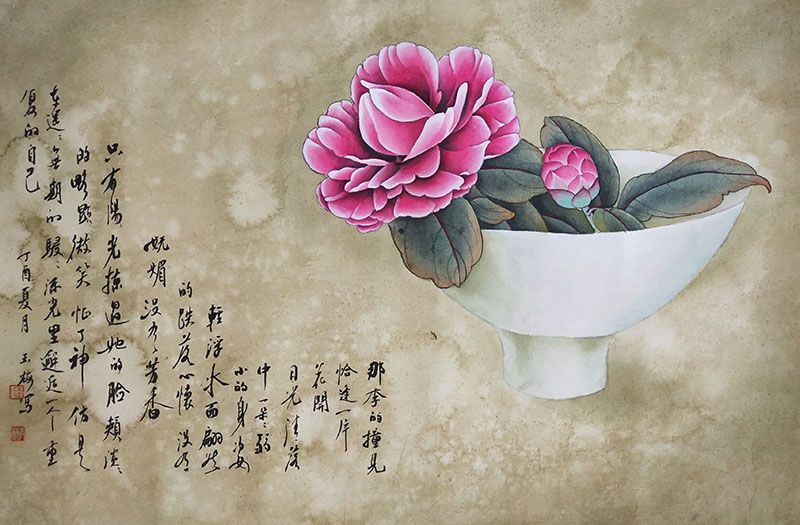 那季的撞見
恰逢一片
花開
日光清落
中一朵弱
小的身姿
輕浮水面翩然
的跌落心懷 没有
妩媚 没有芳香
只有陽光掠過她的臉頰淡淡
的微笑 神 仿是
在遥遥無期的流光里邂逅一个重
复的自己
丁酉夏月 玉梅写